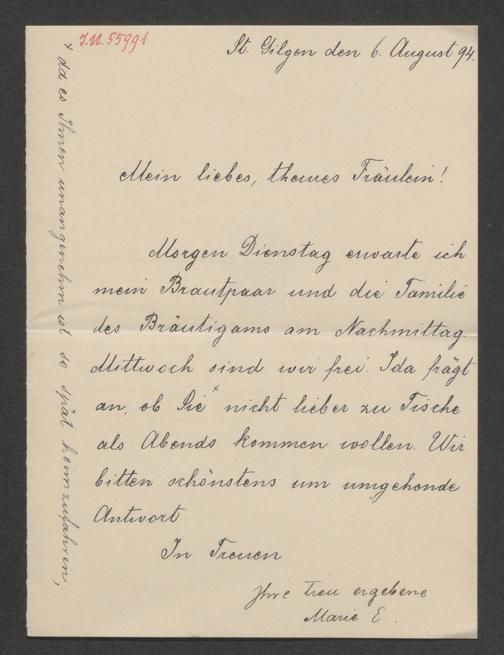 I.N. 55991
St. Gilgen den 6. August 94.
Mein liebes, theures Fräulein!
Morgen Dienstag erwarte ich
mein Brautpaar und die Familie
des Bräutigams am Nachmittag.
Mittwoch sind wir frei. Ida frägt
an, ob Sie x nicht lieber zu Tische
als Abends kommen wollen. Wir
bitten schönstens um umgehende
Antwort.
In Treuen
Ihre treu ergebene
Marie E.
x da es Ihnen unangenehm ist so spät heimzufahren,